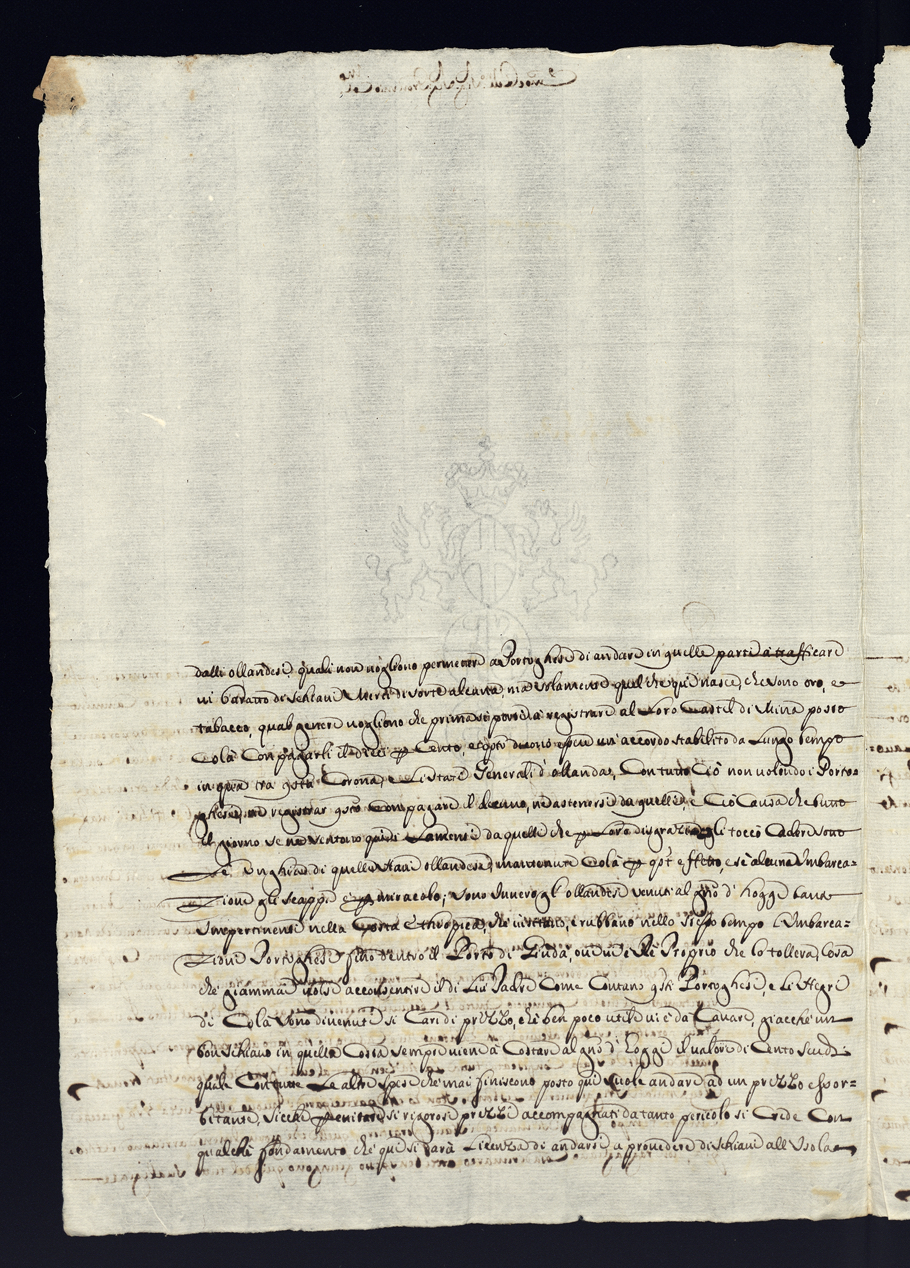 dalli ollandesi, quali non vogliono permettere a Portoghesi di andare in quelle parti à trafficare
ivi baratto di schiavi Merci di sorte alcuna, ma solamente quell' che quì nasce, che sono oro, e
tabacco, qual genere vogliono che prima si porti à registrare al Loro Castel di Mina posto
Colà Con pagarli il dieci p Cento, e esservi un' accordo stabilito da Lungo tempo
in quà trà qsta Corona, e Li Stati Generali d' ollanda, Con tutto Ciò non volendo i Porto=
ghesi, ne registrar Con pagare il decimo, ne astenersi da quelle, è Ciò Causa che tutto
il giorno se ne sentono quì Lamenti da quelli che p Loro disgrazia gli toccò Cadere sotto
Le Unghia di quelle Navi ollandesi, mantenute Colà p qst' effetto, e se alcuna Imbarca=
zione gli scappe è p miracolo; sono Innoltre gl' ollandesi venuti al gno d' hogge tanto
Impertinenti nella Costa Ethiopica, che e rubbano nello stesso tempo L'Imbarca=
zioni Portoghesi fino dentro il Porto di Iudà, ove vi è Rè Proprio che lo tollera, Cosa
che giammai volse acconsentire il di Lui Padre Come Contano qsti Portoghesi, e Li Negri
di Colà sono divenuti si Cari di prezzo, che ben poco utile vi è da Cavare, giacche un
bon schiavo in quella Costa sempre viene à Costare al gno d' hogge il valore di Cento scudi
quale Con tutte Le altre spese che mai finiscono posto quì suole andare ad un prezzo esor=
bitante, sicchè p evitare si rigorosi prezzi accompagnati da tanto pericolo si Crede Con
qualche fondamento che quì si darà Licenza di andarsi à provedere di schiavi all' Isola